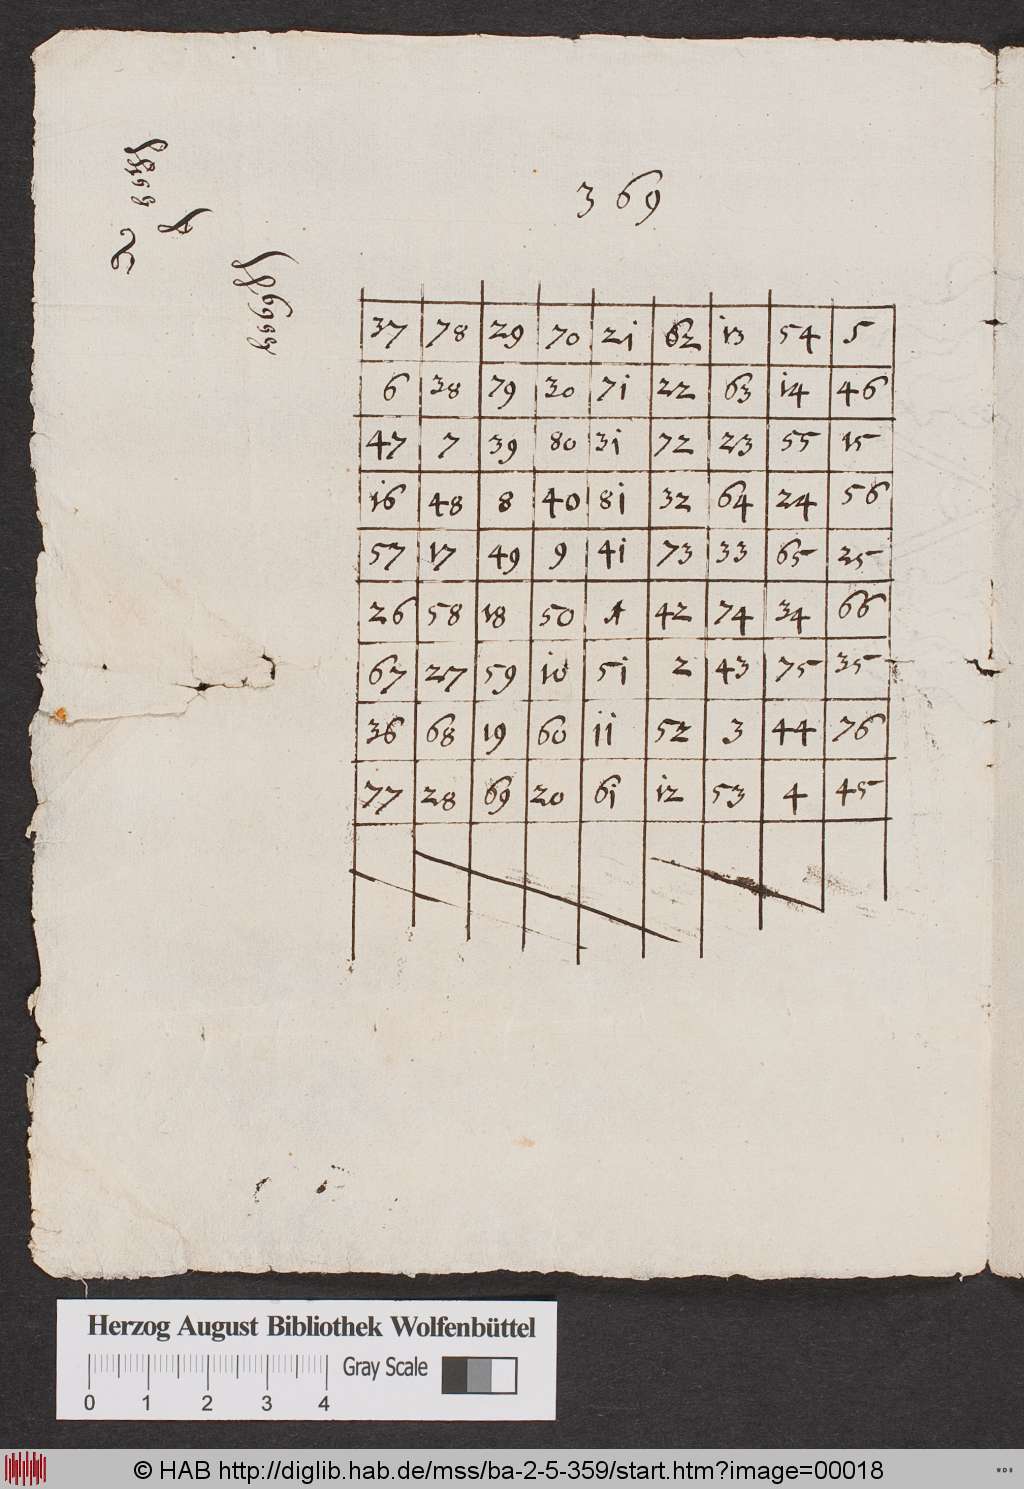 3 69
37 78 29 70 21 62 13 54 5
6 38 79 30 71 22 63 14 46
47 7 39 80 31 72 23 55 15
16 48 8 40 81 32 64 24 56
57 17 49 9 41 73 33 65 25
26 58 18 50 1 42 74 34 66
67 27 59 10 51 2 43 75 35
36 68 19 60 11 52 3 44 76
77 28 69 20 61 12 53 4 45
Herzog August Bibliothek Wolfenbüttel
Gray Scale
0 1 2 3 4
© HAB http://diglib.hab.de/mss/ba-2-5-359/start.htm?image=00018